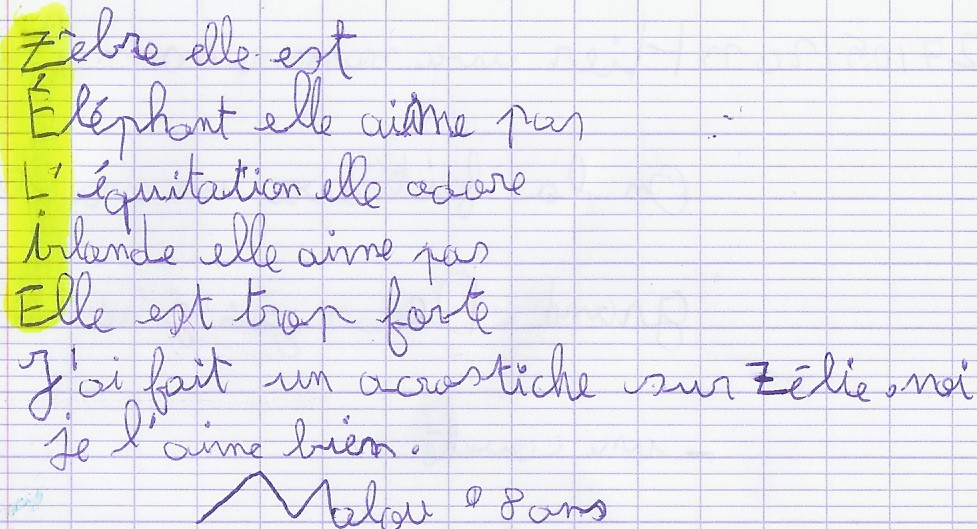 Zèbre elle est
Éléphant elle aime pas
L'équitation elle adore
irlande elle aime pas
Elle est trop forte
J'ai fait un acrostiche sur Zélie, moi
je l'aime bien.
Malou 8 ans